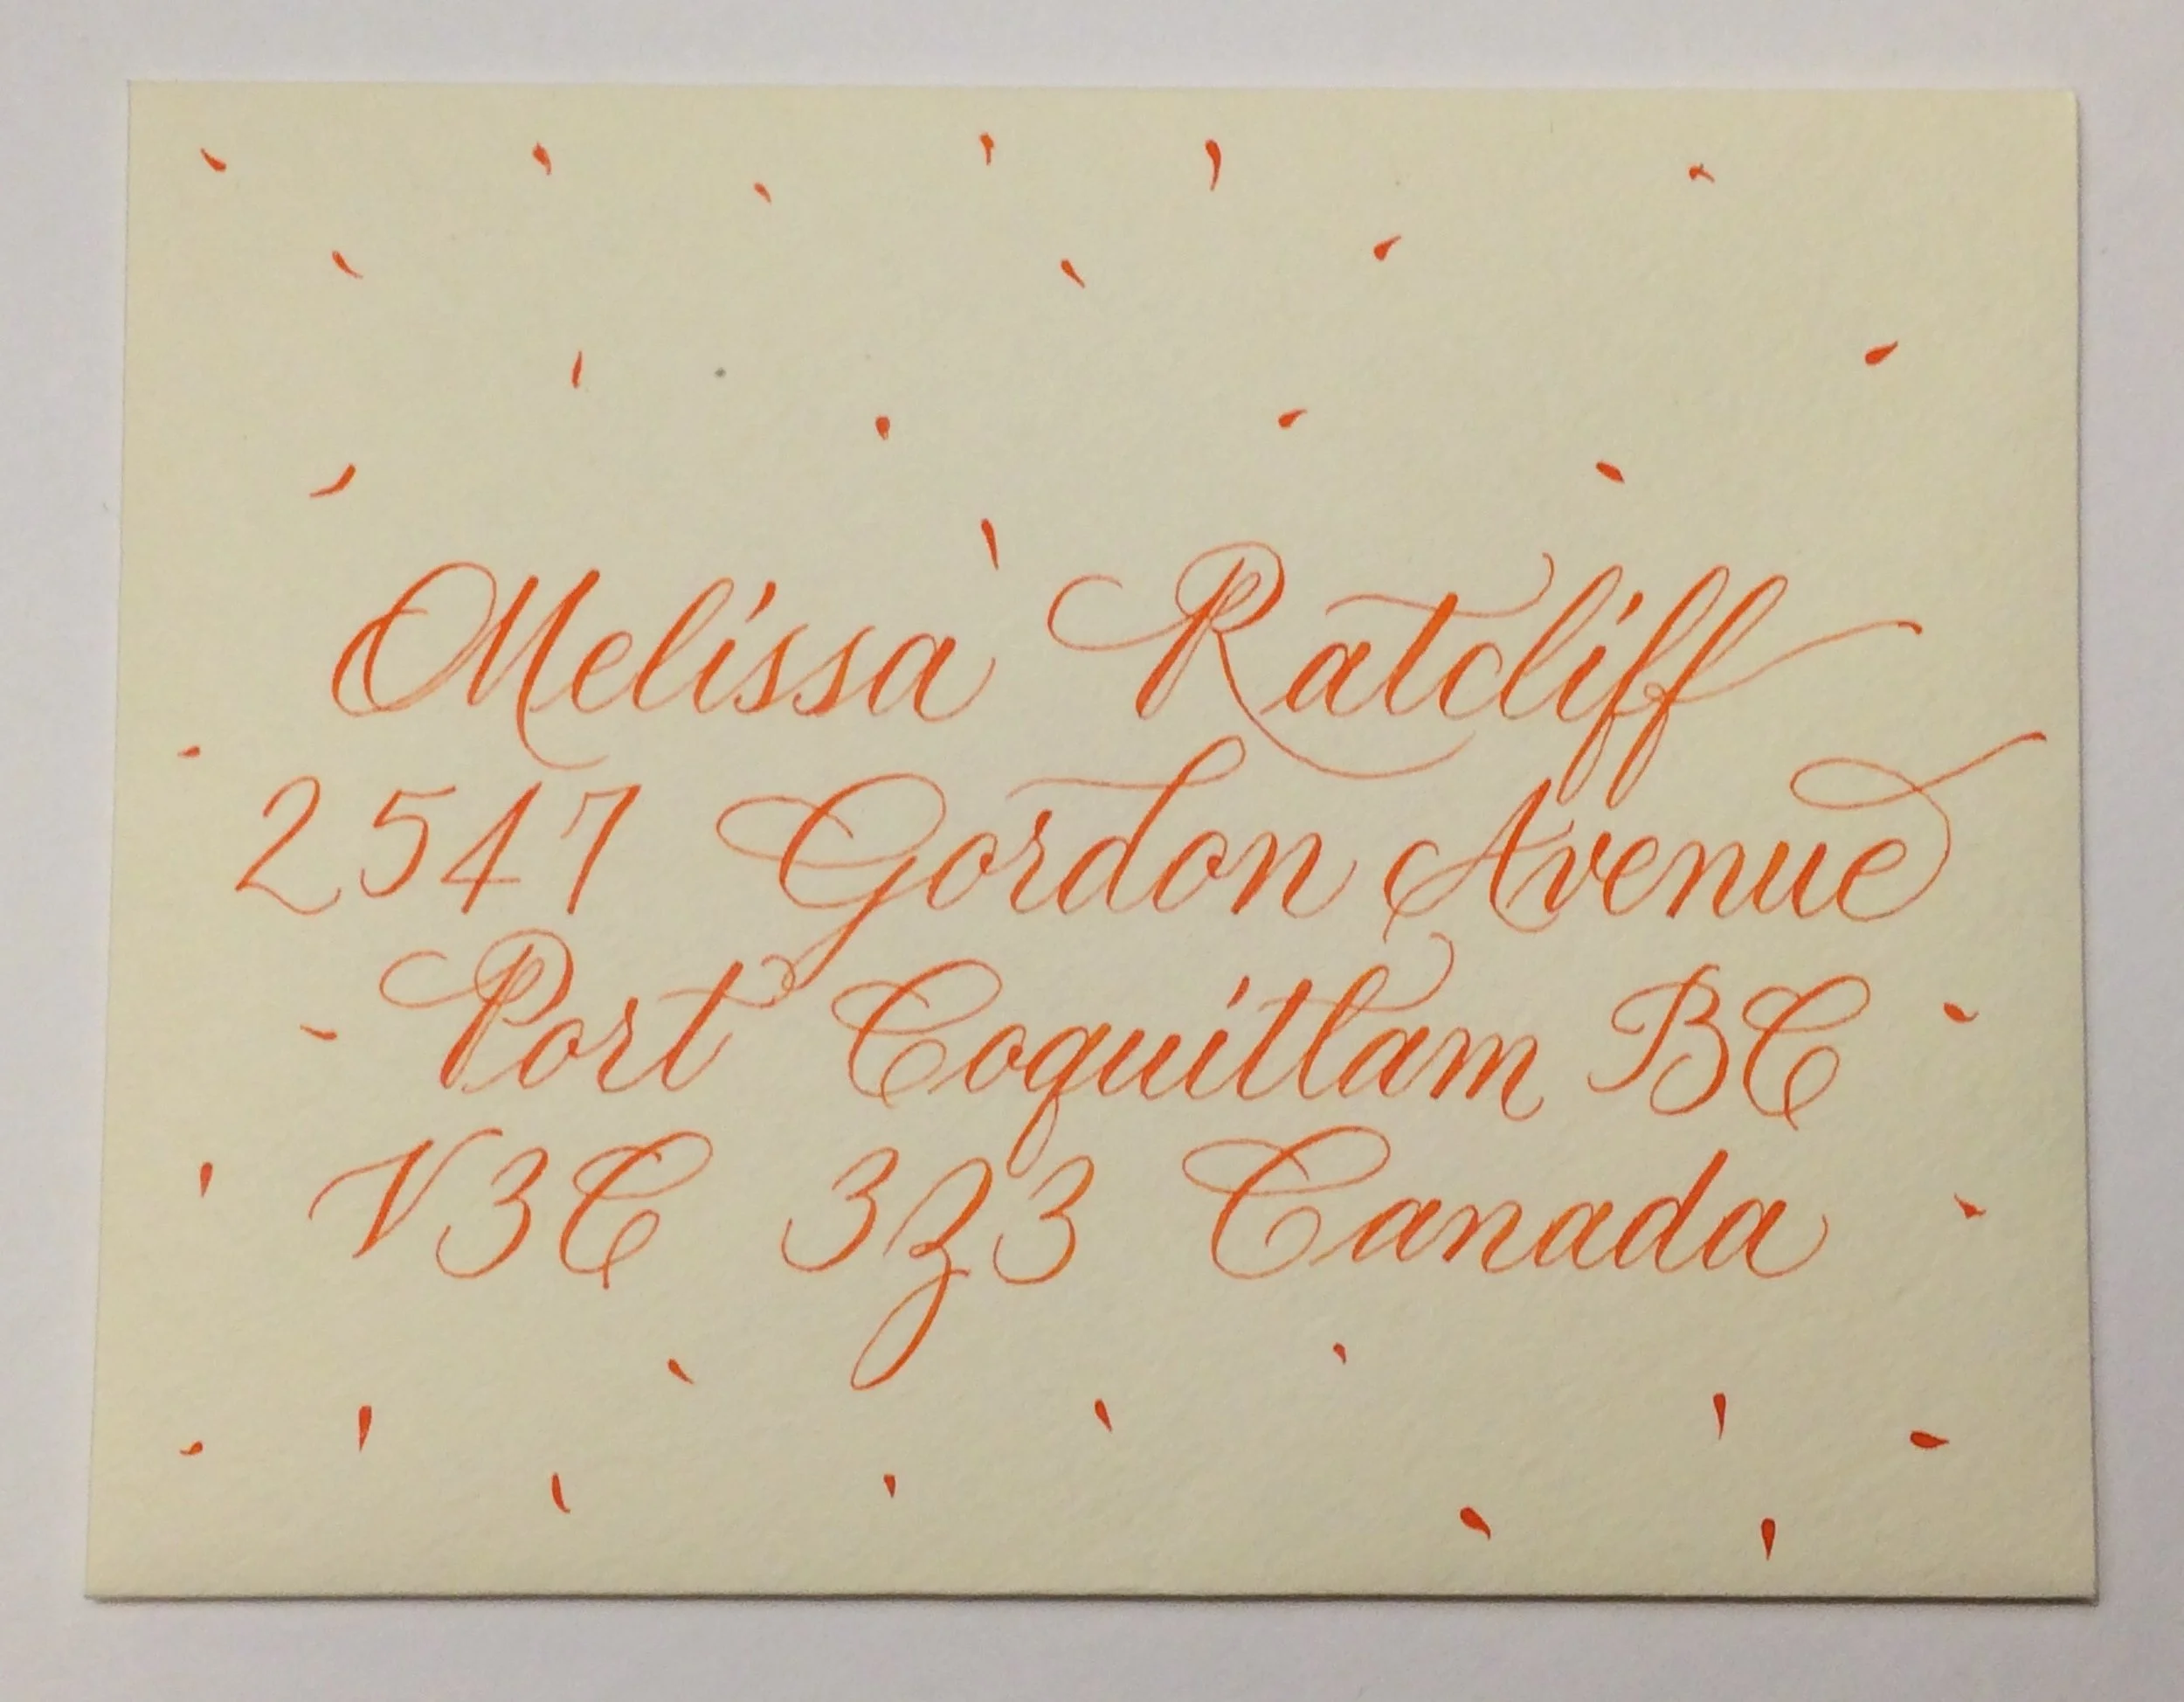 Melissa Ratcliff
2547 Gordon Avenue
Port Coquitlam BC
V3C 3Z3 Canada